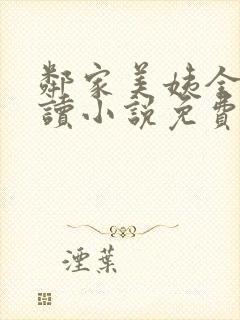 鄰家美姨全
讀小說免費
湮葉